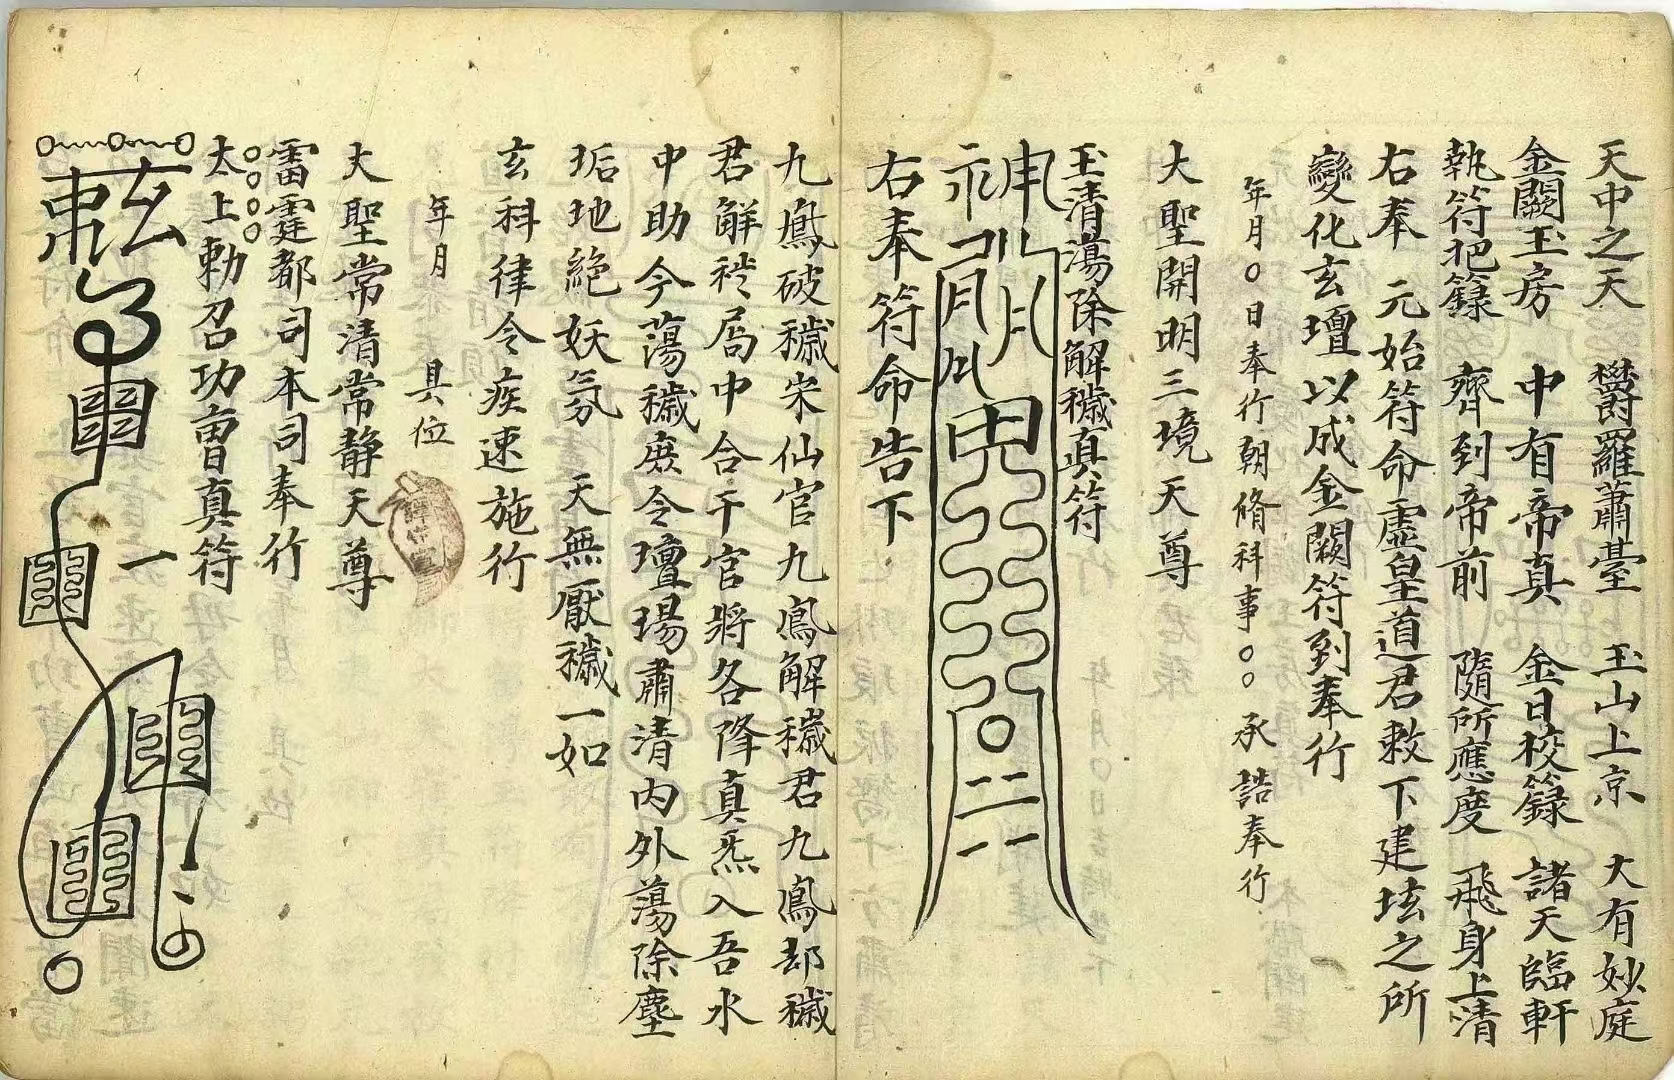 天中之天　欝羅蕭臺　玉山上京　大有妙庭
金闕玉房　中有帝真　金日校籙　諸天臨軒
執符把籙　齊到帝前　隨所應度　飛身上清
右奉　元始符命虛皇道君敕下建坛之所
變化玄壇以成金闕符到奉行
年月〇日奉行朝脩科事〇〇承誥奉行
大聖開明三境天尊
玉清蕩除解穢真符
右奉符命告下
九鳳破穢宋仙官九鳳解穢君九鳳却穢
君解秽局中合干官將各降真炁入吾水
中助今蕩穢庶令壇場肅清内外蕩除塵
垢地絕妖氛　天無厭穢一如
玄科律令疾速施行
年月　具位
大聖常清常静天尊
雷霆都司本司奉行
〇〇〇〇
太上勅召功曹真符
一